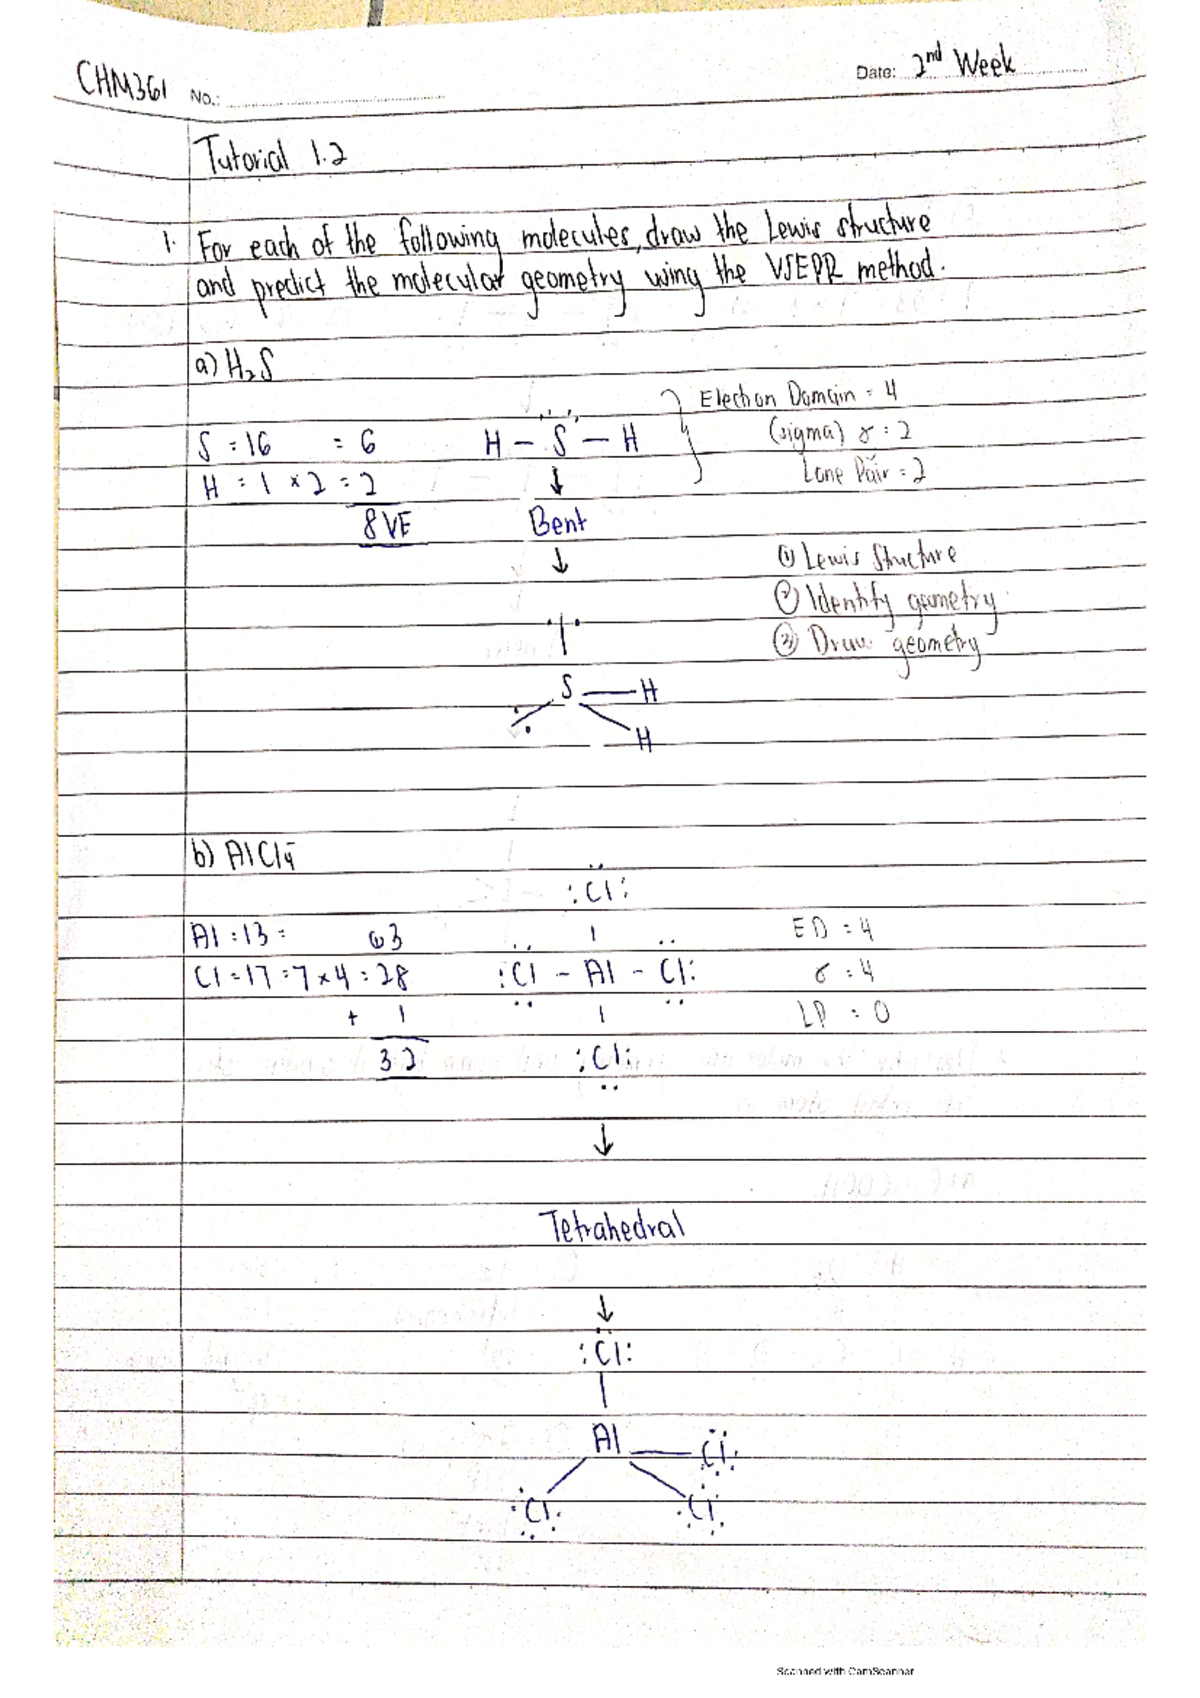 CHM361 No.: Date: 2nd Week
Tutorial 1.2
1. For each of the following molecules, draw the Lewis structure
and predict the molecular geometry using the VSEPR method.
a) H₂S
Electron Domain = 4
S = 16 = 6 H – S – H (sigma) σ = 2
H = 1 × 2 = 2 ↓ Lone Pair = 2
8 VE Bent
↓ ① Lewis Structure
② Identify geometry
③ Draw geometry
S — H
H
b) AlCl₄⁻
:Cl:
Al : 13 = 3 ED = 4
Cl = 17 = 7 × 4 = 28 :Cl – Al – Cl: σ = 4
+ 1 LP = 0
32 :Cl:
↓
Tetrahedral
↓
:Cl:
Al Cl
Cl Cl
Scanned with CamScanner